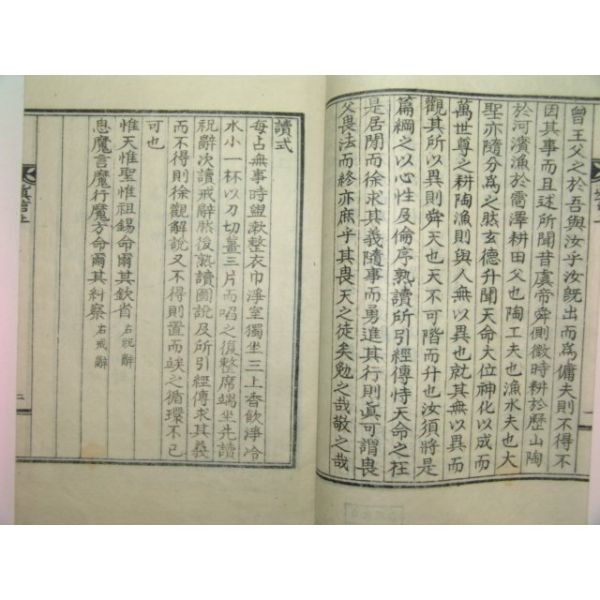 曾王父之於吾與汝乎汝旣出而爲傭夫則不得不
因其事而且述所聞昔虞帝舜側微時耕於歷山陶
於河濱漁於雷澤耕田父也陶工夫也漁水夫也大
聖亦隨分爲之然玄德升聞天命大位神化以成而
萬世尊之耕陶漁則與人無以異也就其無以異而
觀其所以異則舜天也天不可階而升也汝須將是
篇綱之以心性及倫序熟讀所引經傳恃天命之在
是居閒而徐求其義隨事而勇進其行則眞可謂畏
父畏法而終亦庶乎其畏天之徒矣勉之哉敬之哉
讀式
每占無事時盥漱整衣巾淨室獨坐三上香飮淨冷
水小一杯以刀切薑三片而唱之復整席端坐先讀
祝辭次讀戒辭然後熟讀圖說及所引經傳求其義
而不得則徐觀解說又不得則置而竢之循環不已
可也
惟天惟聖惟祖錫命爾其欽哉右祝辭
息魔言魔行魔方命爾其糾察右戒辭